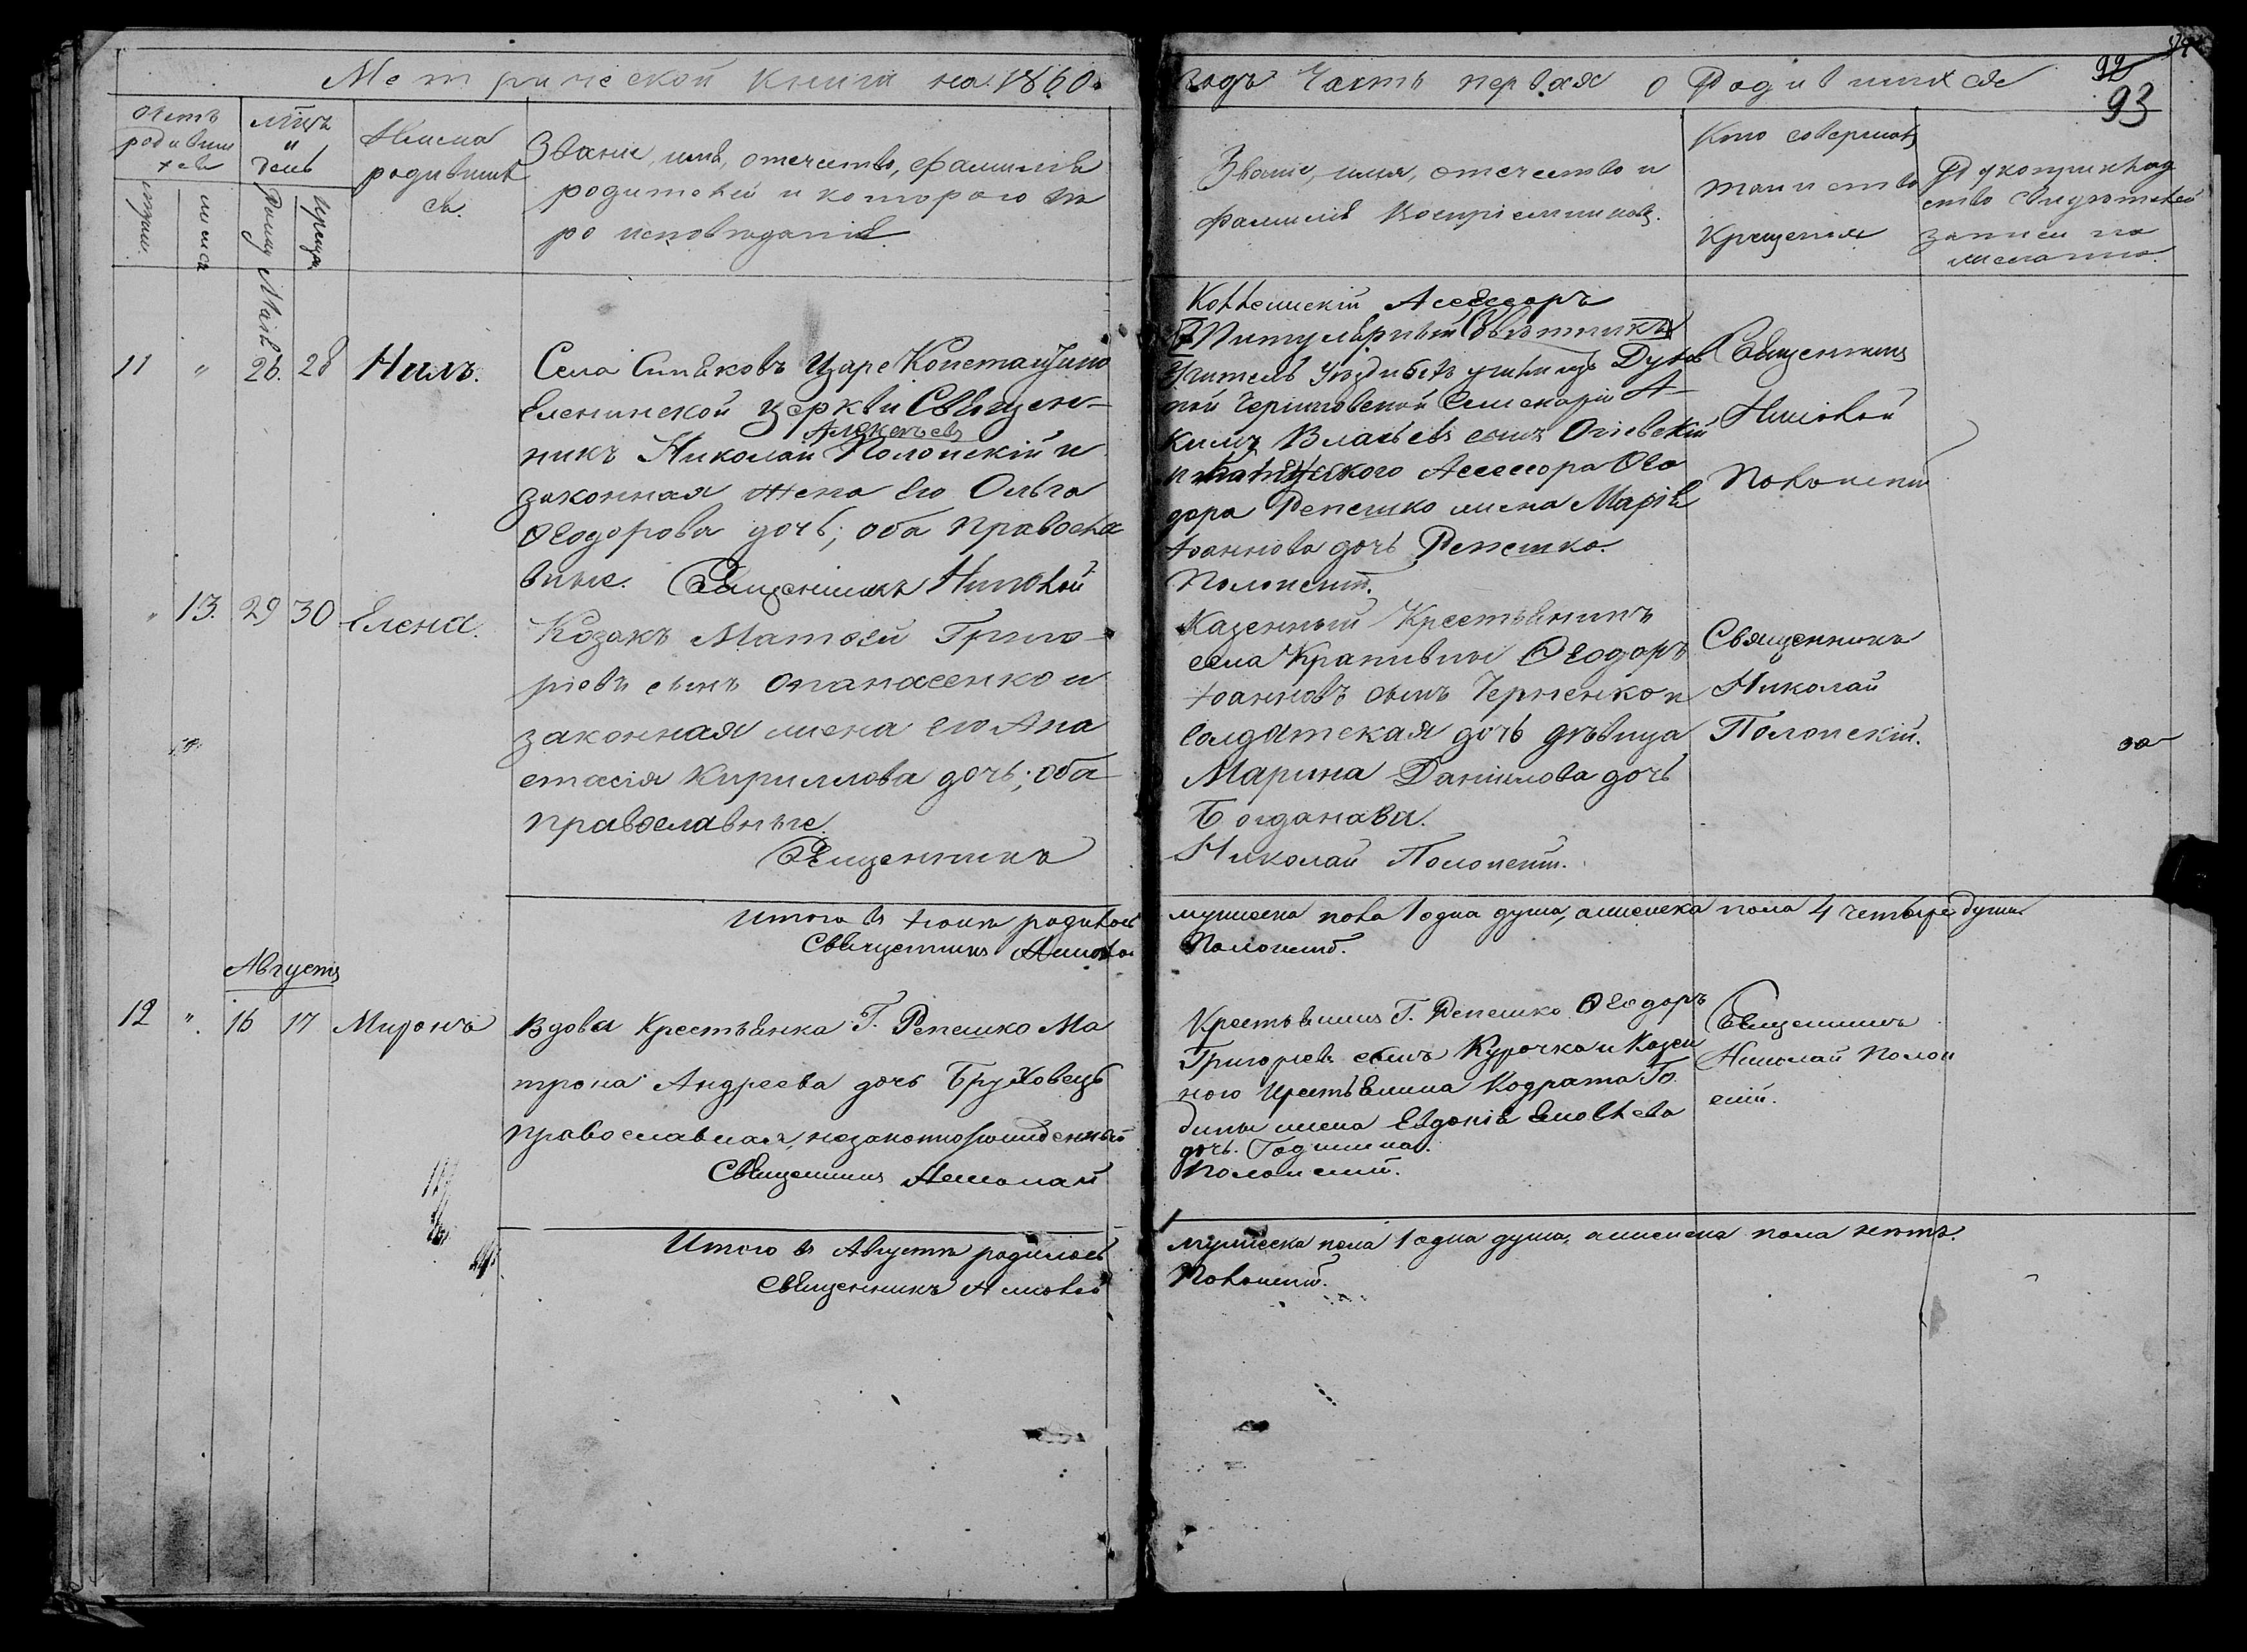 Метрической книги на 1860.
годъ Часть первая о Родившихся
92
93
Счетъ
родивших
ся
мцъ
и
день
Имена
родивших
ся.
Званіе, имя, отчество, фамилія
родителей и котораго вѣ
роисповѣданія
Званіе, имя, отчество и
фамилія Воспріемниковъ.
Кто совершалъ
таинство
Крещенія
Рукоприклад
ство свидѣтелей
записи по
желанію.
11 " 26. 28 Нилъ.
Села Синяковъ Царе Константино
Еленинской церкви Священ-
Алексѣевъ
никъ Николай Полонскій и
законная жена его Ольга
Ѳеодорова дочь; оба Правосла
вные. Священникъ Николай
Коллежскій Асессоръ
Титулярный Совѣтникъ
Учитель Уѣздныхъ училищъ Духов
ной Черниговской Семинаріи А
кимъ Власьевъ сынъ Огіевскій
Асессора Ѳео
дора Репешко жена Марія
Іоаннова дочь Репешко.
Полонскій.
Священникъ
Николай
Полонскій
" 13. 29 30 Елена.
Козакъ Матѳей Григо-
ріевъ сынъ Опанасенко и
законная жена его Ана
стасія Кириллова дочь; оба
православные.
Священникъ
Казенный Крестьянинъ
села Крапивны Ѳеодоръ
Іоанновъ сынъ Черненко и
солдатская дочь дѣвица
Марина Даніилова дочь
Богданова.
Николай Полонскій.
Священникъ
Николай
Полонскій.
Итого въ Іюлѣ родилось
мужеска пола 1 одна душа, а женска пола 4 четыре души.
Священникъ Николай
Полонскій.
Августъ
12 " 16 17 Миронъ
Вдова Крестьянка Г. Репешко Ма
трона Андреева дочь Бруховецъ
православная, незаконнорожденный
Священникъ Николай
Крестьянинъ Г. Репешко Ѳеодоръ
Григорьевъ сынъ Курочка и Казен
ного Крестьянина Кодрата Го
дины жена Евдокія
дочь. Годинина.
Полонскій.
Священникъ
Николай Полон
скій.
Итого въ Августѣ родилось
мужеска пола 1 одна душа, а женска пола нѣтъ.
Священникъ Николай
Полонскій.